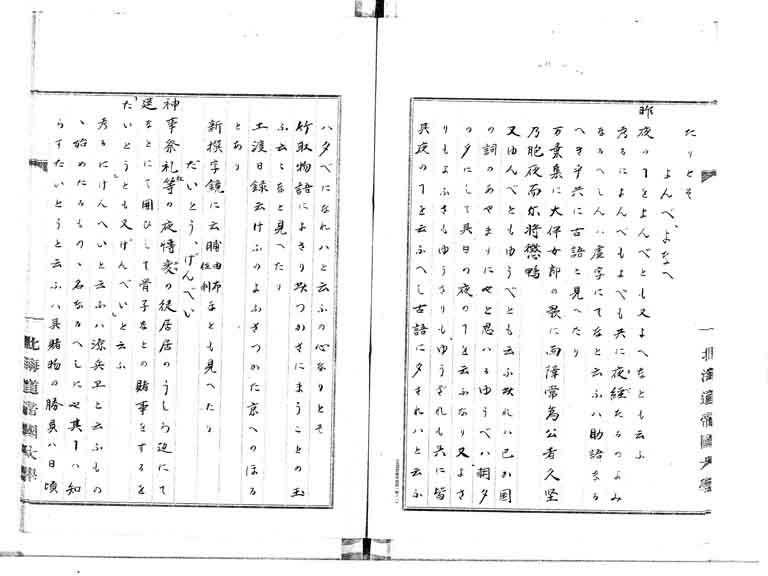 たりとそ
よんべ、よなへ
昨夜のヿをよんべとも又よへなとも云ふ
考るによんべもよべも共に夜経たるのよみ
なるへしんハ虚字にてなと云ふハ助語なる
へき乎共に古語と見へたり
万葉集に大伴女郎の歌に雨障常為公者久堅
乃昨夜雨尓将懲鴨
又ゆんべともゆうべとも云ふ欤れハ己か国
の詞のあやまりにやと思ハるゆうべハ調夕
の夕にして其日の夜のヿを云ふなり又よさ
りもよふさりもゆうさりもゆうざれも共に皆
其夜のヿを云ふへし古語に夕されハと云ふ
ハ夕べになれハと云ふの心なりとそ
竹取物語によさり欤つかさにまうことの玉
ふ云々なと見へたり
土渡日録云けふのよふさつかた京へのほる
とあり
新撰字鏡に云晡由布佐利なとも見へたり
だいとう、げんべい
神事祭礼等の夜博奕の徒居居のうしろ辺にて
莚なとにて用ひして骨子なとの賭事をするを
だいとうとも又げんべいと云ふ
考るにけんへいと云ふハ源兵卫と云ふもの
ゝ始めたるものゝ名なるへしにや其ヿハ知
らすたいとうと云ふハ其賭物の勝負ハ日頃
一北海道帝國大學
北海道帝國大學